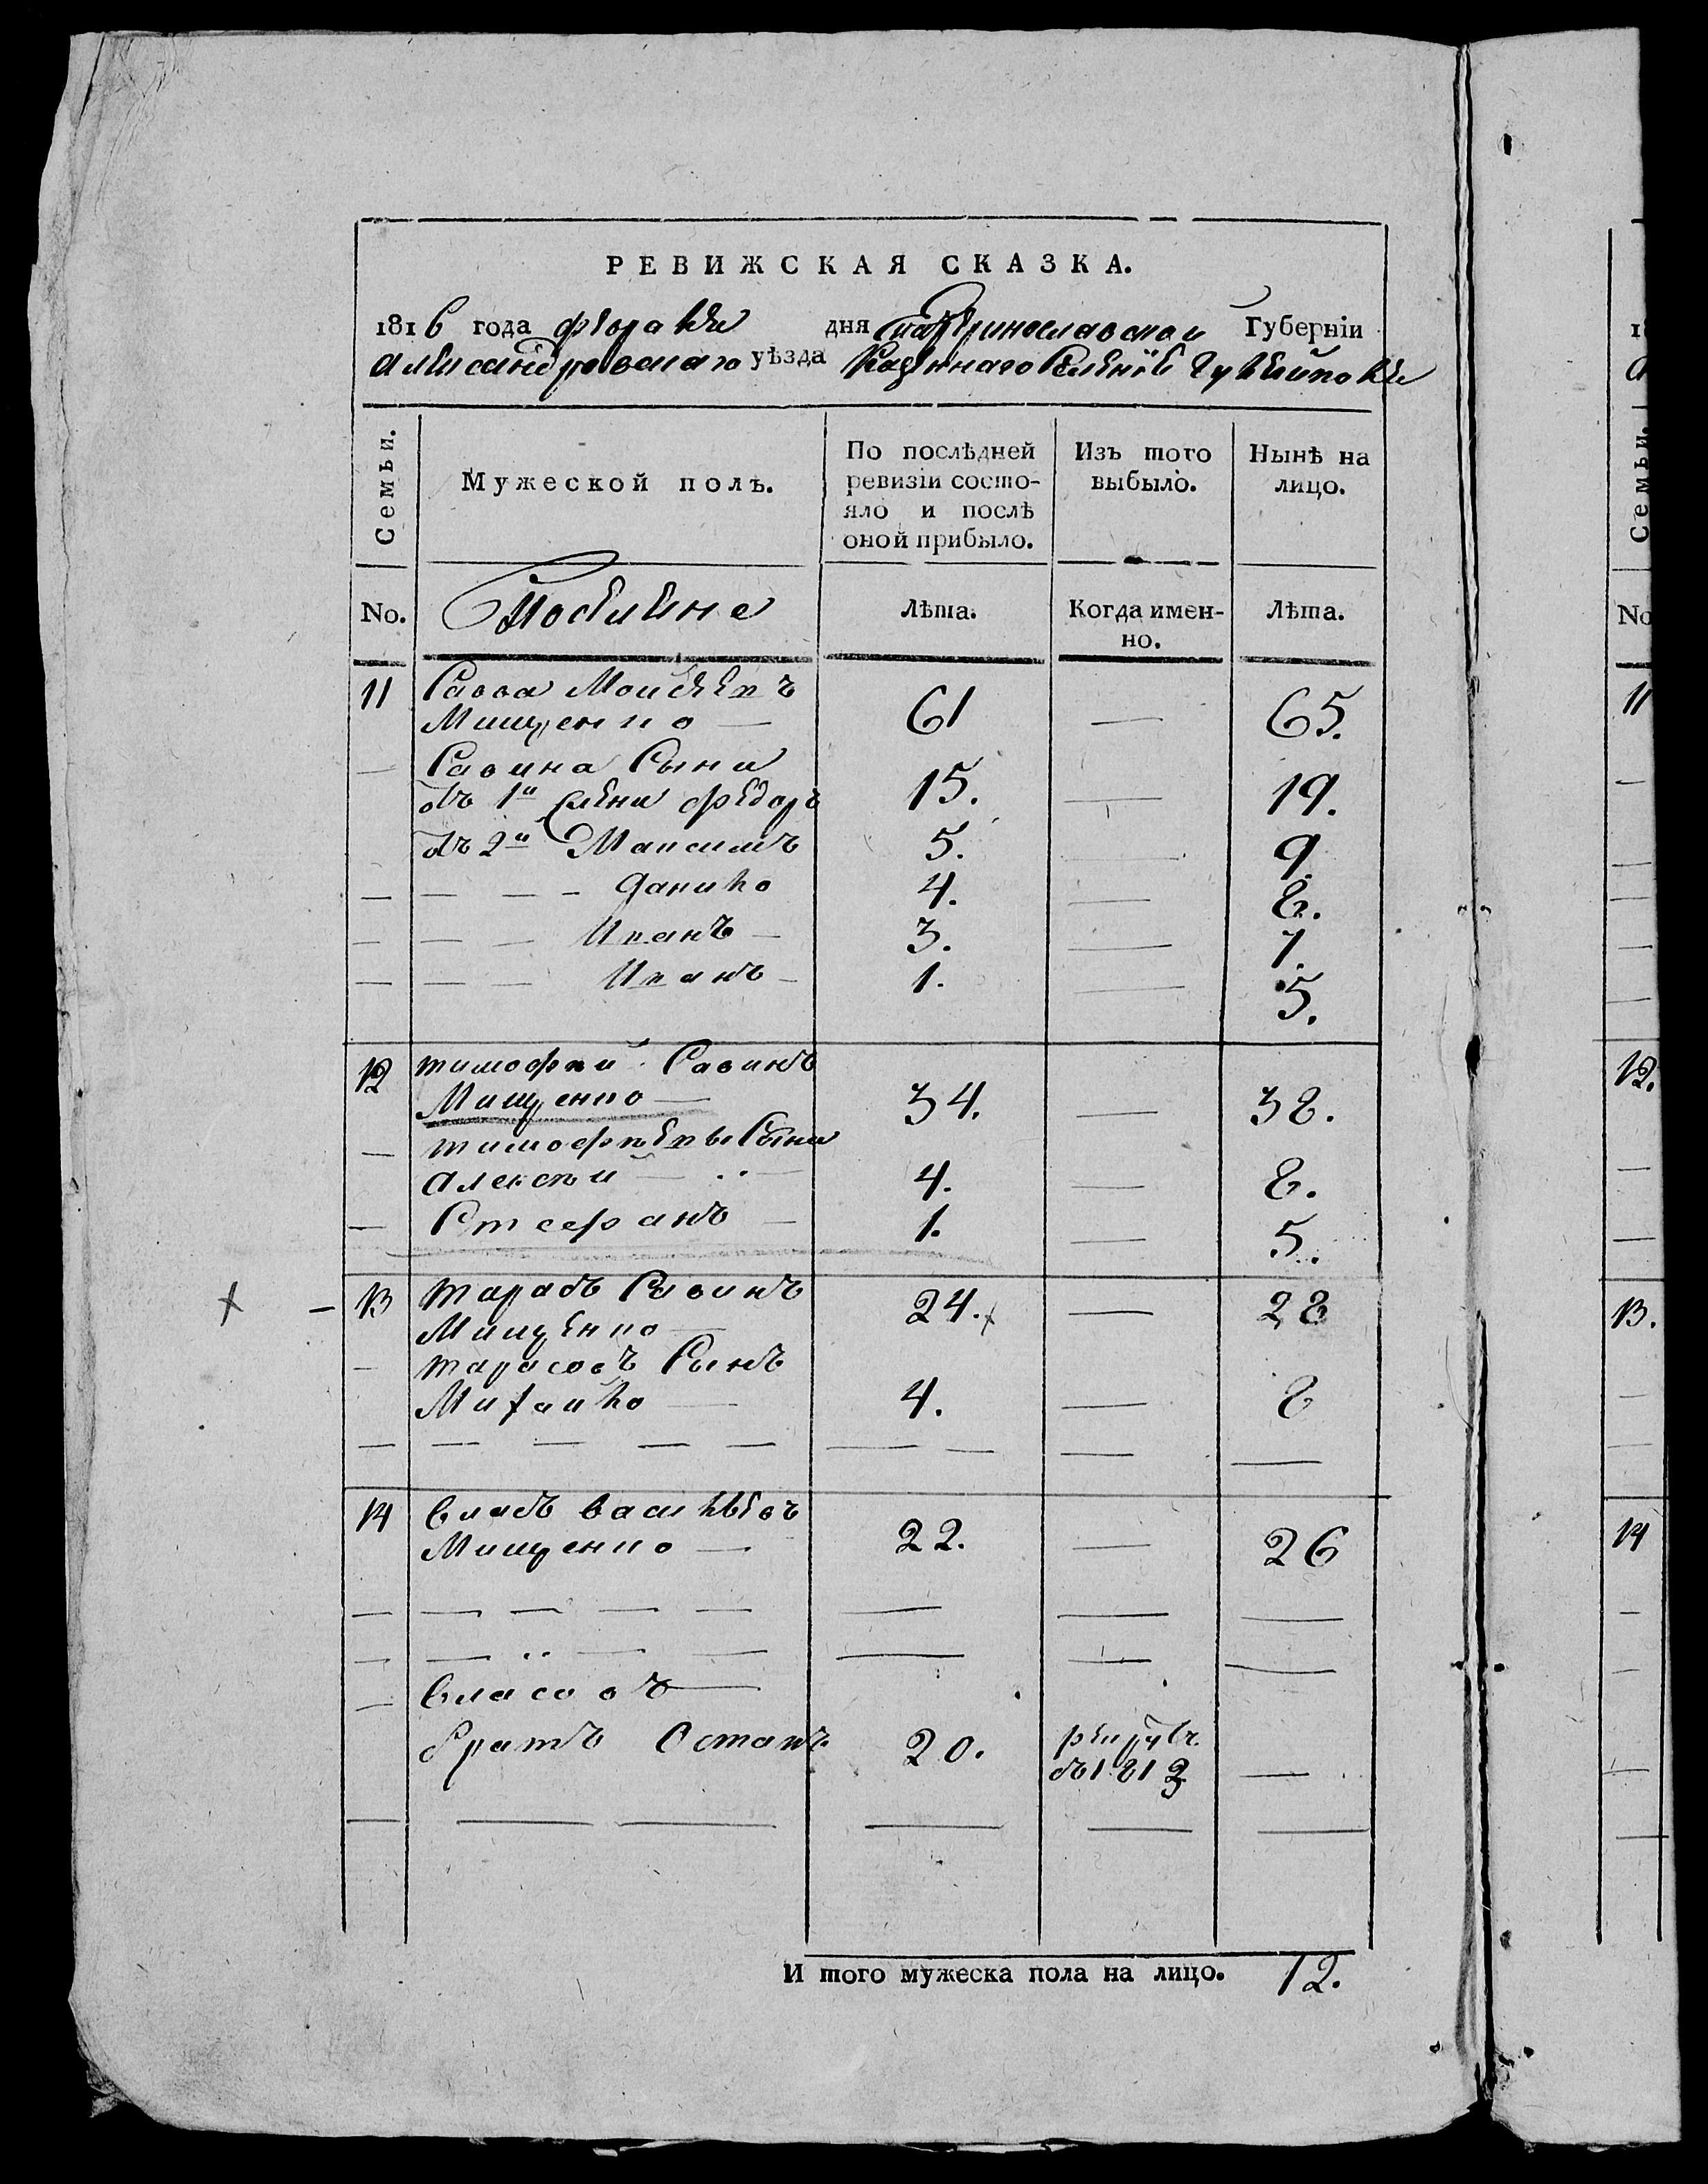 РЕВИЖСКАЯ СКАЗКА.
1816 года февраля дня Екатеринославской Губернїи
Александровского уѣзда Казенного Селенїя
Семьи.
Мужеской полъ.
По послѣдней
ревизїи состо-
яло и послѣ
оной прибыло.
Изъ того
выбыло.
Нынѣ на
лицо.
No.
Поселяне
Лѣта.
Когда имен-
но.
Лѣта.
11 Савва Моисѣевъ
Мищенко — 61 — 65.
— Савина Сыни
отъ 1й жени Федоръ 15. — 19.
отъ 2й Максимъ 5. — 9.
— — — — Данило 4. — 8.
— — — Иванъ — 3. — 7.
— — — Иванъ — 1. — 5.
12 Тимофѣй Савинъ
Мищенко — 34. — 38.
— Тимофѣевы Сыни
Алексѣй — 4. — 8.
— Стефанъ — 1. — 5.
13 Тарасъ Савинъ
Мищенко — 24. — 28
— Тарасовъ Сынъ
Михайло — 4. — 8
— — — — — — — — —
14 Власъ Васильевъ
Мищенко — 22. — 26
— — — — — — — —
— — — — — — —
— Власовъ —
братъ Остапъ 20. рекрутъ
въ 1813 —
— — — — — —
И того мужеска пола на лицо. 12.
18
Семьи.
No
11
12.
13.
14